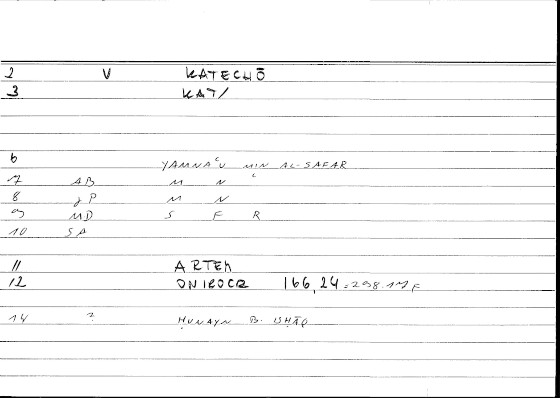 2 V KATECHŌ
3 KAT/
6 YAMNAʿU MIN AL-SAFAR
7 AB M N ʿ
8 JP M N
9 MD S F R
10 SA
11 ARTEM
12 ONIROCR 166,24 = 298.17 F
14 ? ḤUNAYN B. ISḤĀQ